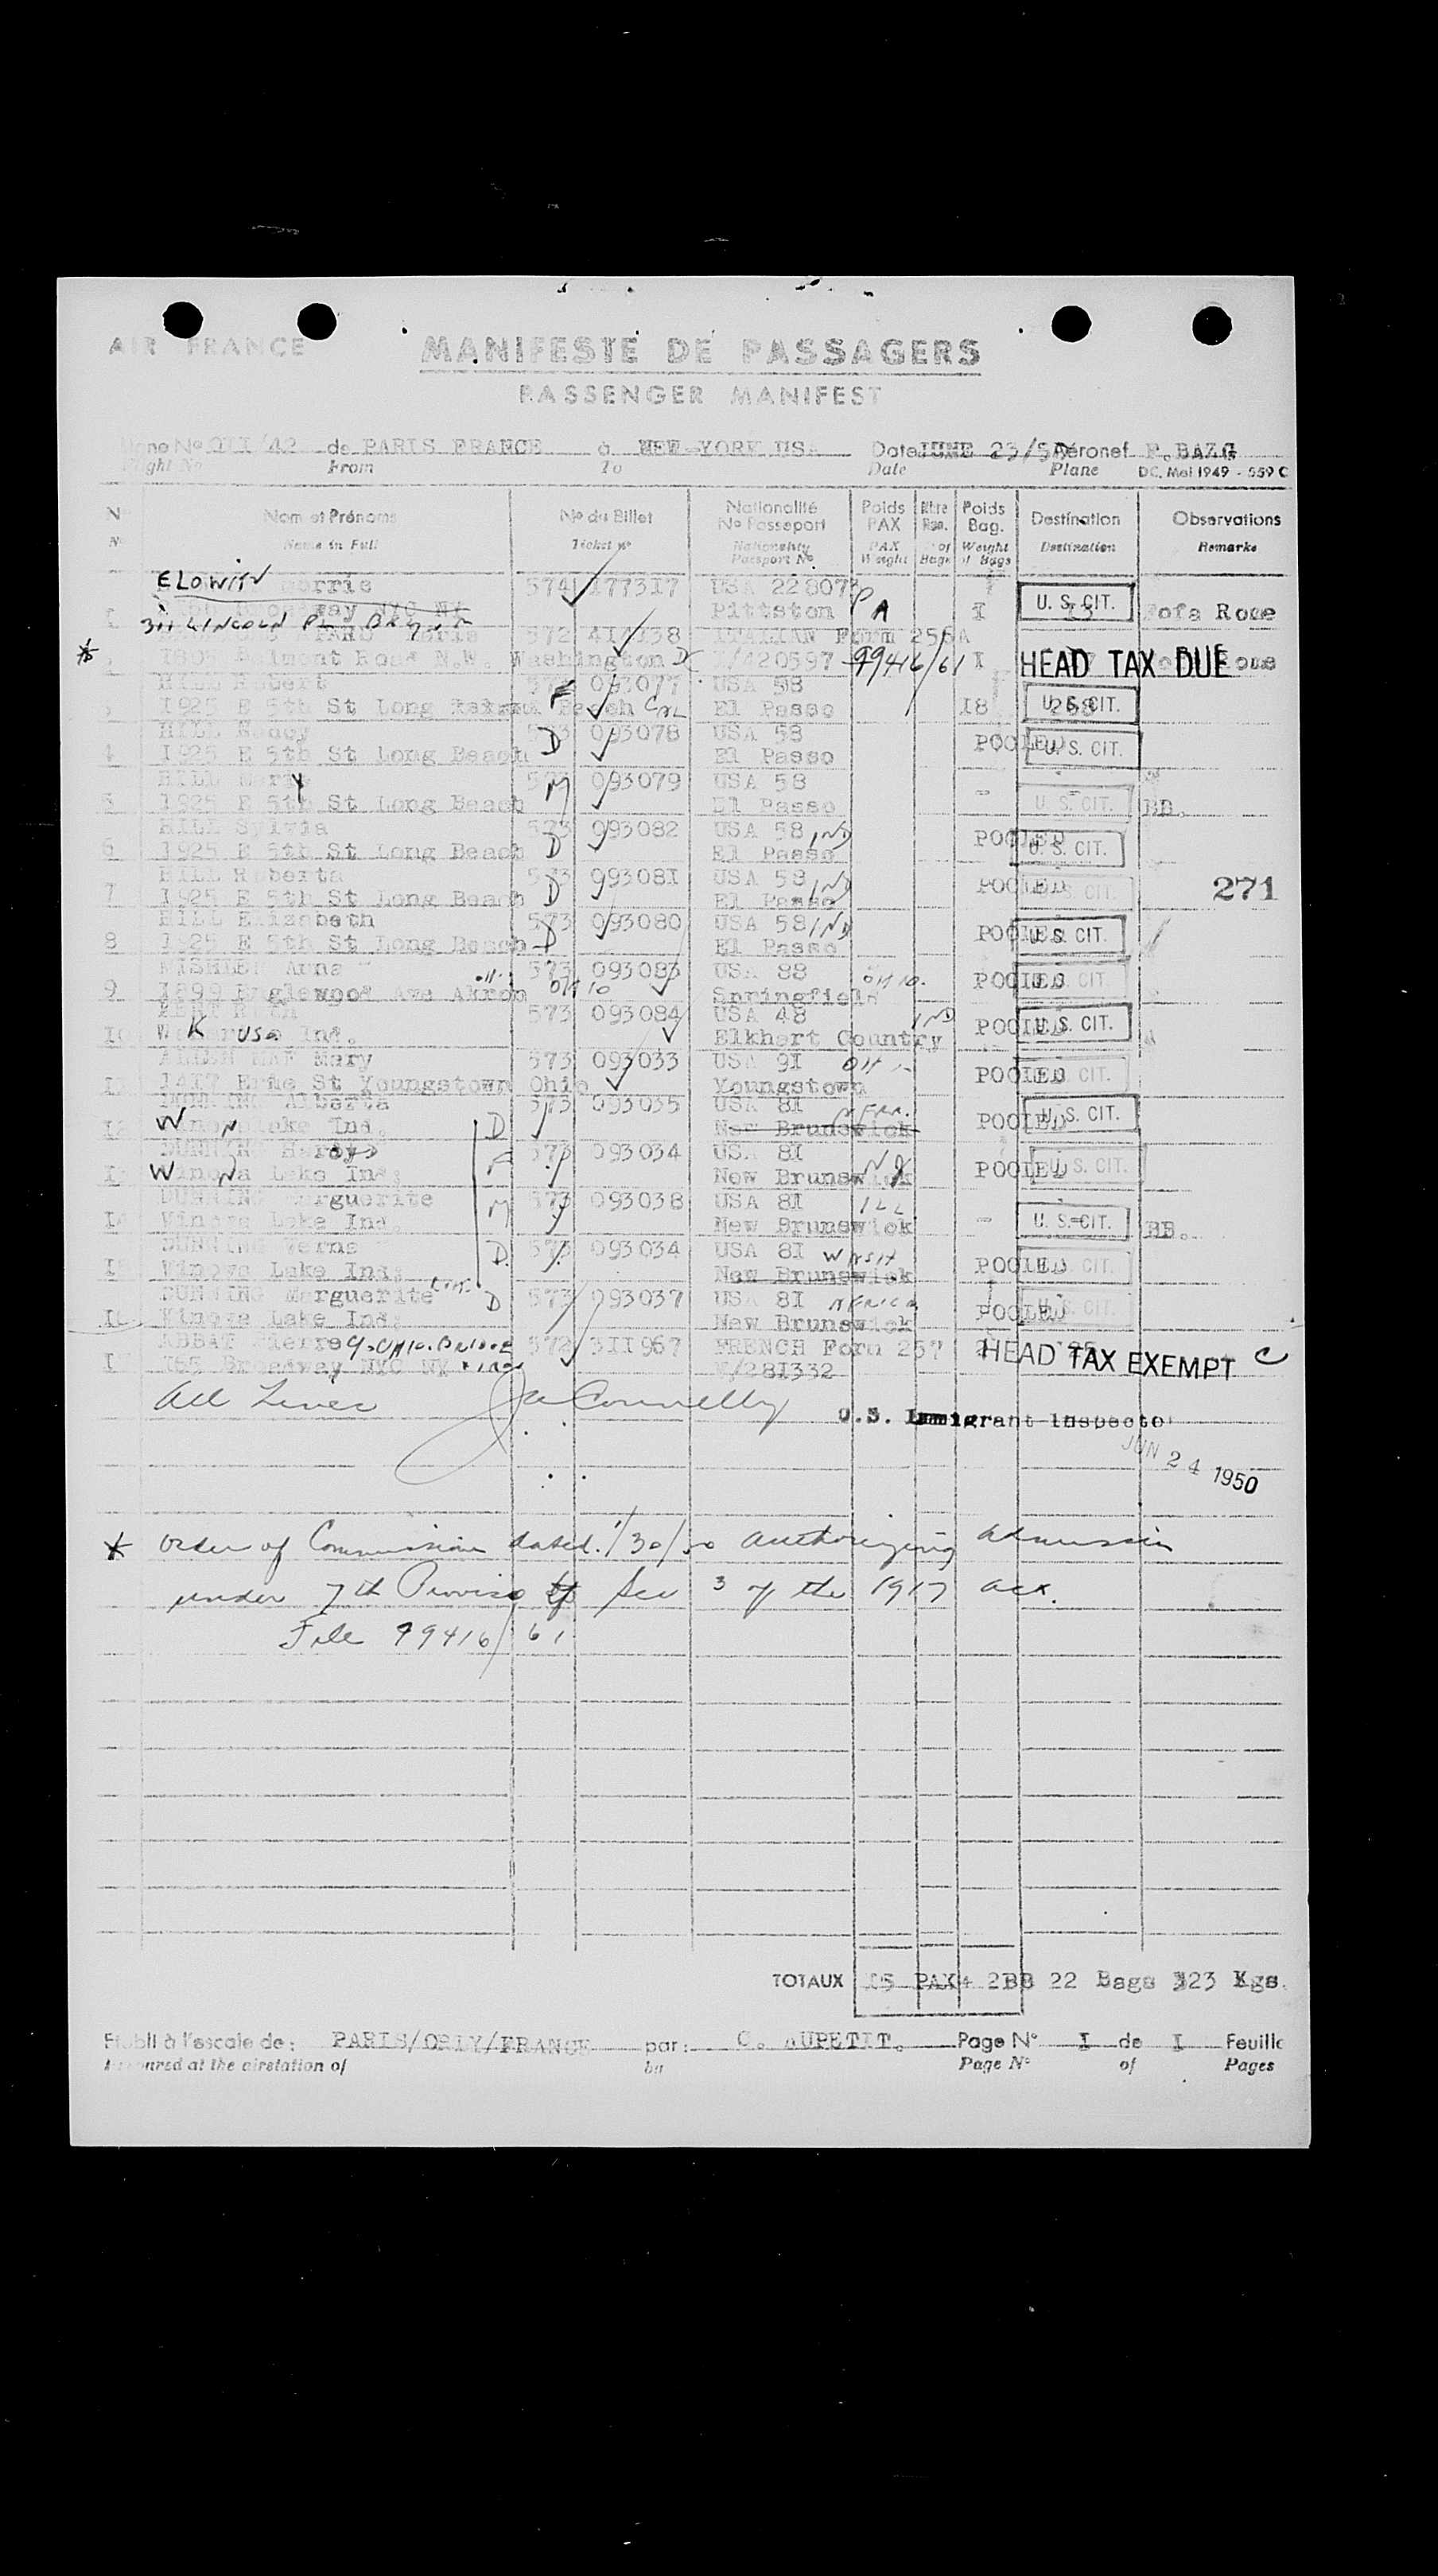 AIR FRANCE
MANIFESTE DE PASSAGERS
PASSENGER MANIFEST
Nº 011/42 de PARIS FRANCE à NEW-YORK USA Date JUNE 23/50 Aéronef F.BAZG
From To Date Plane DC. Mai 1949 - 559 C
Nom et Prénoms Nº du Billet Nationalité Poids Poids Destination Observations
Nº Passeport PAX Bag.
Name in Full Ticket nº Nationality PAX of Weight Destination Remarks
Passport Nº Weight Bags of Bags
ELOWITZ Morris 574 177317 USA 228072
1 Broadway NYC NY Pittston PA I U. S. CIT. Rome
311 LINCOLN PL
* 572 ITALIAN Form 256A
2 1805 Belmont Road N.W. Washington DC I/420597 99416/61 I HEAD TAX DUE Rome
HILL Robert 573 F 093077 USA 58
3 1925 E 5th St Long Beach CAL El Passo 18 268 U. S. CIT.
HILL Nancy 573 093078 USA 58
4 1925 E 5th St Long Beach D El Passo POOLED U. S. CIT.
HILL Mary 573 093079 USA 58
5 1925 E 5th St Long Beach M El Passo - U. S. CIT. BB.
HILL Sylvia 573 093082 USA 58 IND
6 1925 E 5th St Long Beach D El Passo POOLED U. S. CIT.
HILL Roberta 573 093081 USA 58 IND
7 1925 E 5th St Long Beach D El Passo POOLED U. S. CIT. 271
HILL Elizabeth 573 093080 USA 58 IND
8 1925 E 5th St Long Beach D El Passo POOLED U. S. CIT.
Anna 573 093083 USA 88 OHIO.
9 1899 Englewood Ave Akron OHIO Springfield POOLED CIT.
Ruth 573 093084 USA 48 IND
10 WaKarusa Ind. Elkhart Country POOLED U. S. CIT.
Mary 573 093033 USA 91 OH
11 1417 Erie St Youngstown Ohio Youngstown POOLED CIT.
DUNNING Alberta 573 093035 USA 81 AFRI.
12 Winona Lake Ind. D New Brunswick POOLED U. S. CIT.
DUNNING Hardy 573 093034 USA 81 NJ
13 Winona Lake Ind; F New Brunswick POOLED U. S. CIT.
DUNNING Marguerite 573 093038 USA 81 ILL
14 Winona Lake Ind. M New Brunswick - U. S. CIT. BB.
DUNNING Verna 573 093034 USA 81 WASH
15 Winona Lake Ind; D. New Brunswick POOLED CIT.
DUNNING Marguerite D 573 093037 USA 81 AFRICA
16 Winona Lake Ind; New Brunswick POOLED U. S. CIT.
ABBAT Pierre 572 311967 FRENCH Form 257
17 165 Broadway NYC NY V/281332 HEAD TAX EXEMPT C
All Lines J a Connelly
U.S. Immigrant Inspector
JUN 24 1950
* Order of Commission dated 1/30/50 authorizing admission
under 7th Proviso of Sec 3 of the 1917 act.
File 99416/61
TOTAUX 15 PAX+ 2BB 22 Bags 323 Kgs.
Etabli à l'escale de: PARIS/ORLY/FRANCE par: C. AUPETIT. Page Nº I de I Feuille
at the airstation of by Page Nº of Pages